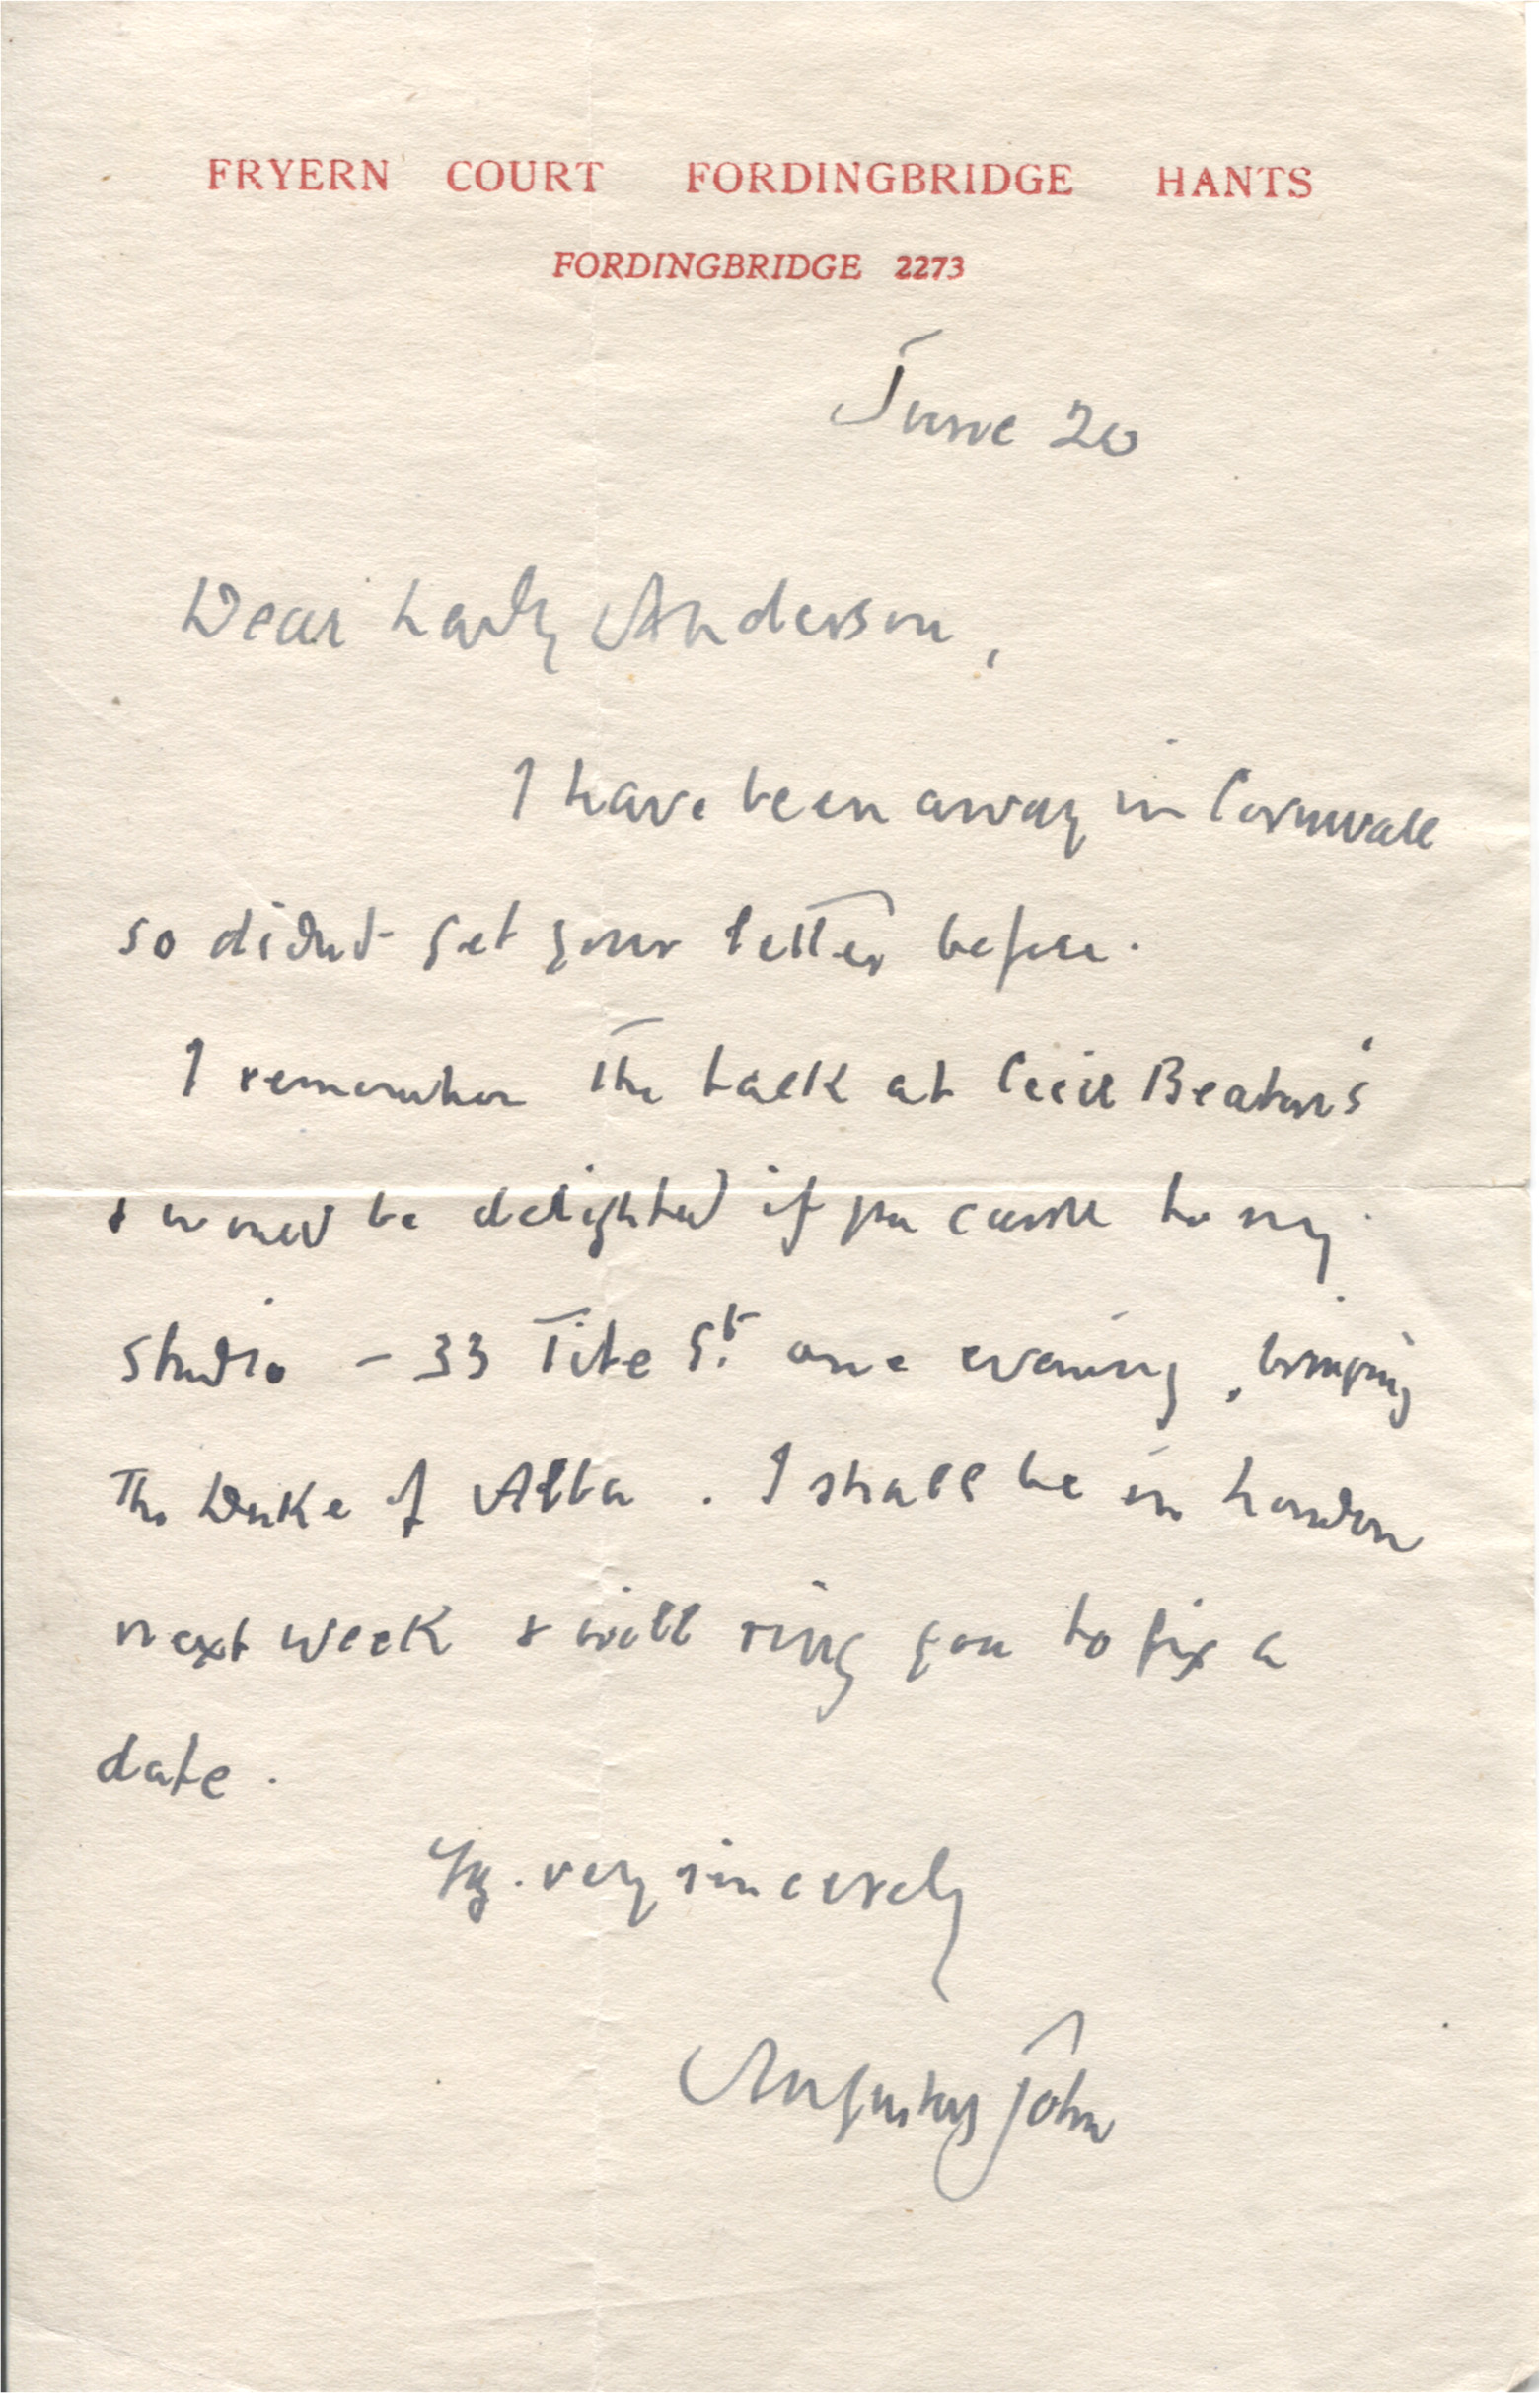 FRYERN COURT FORDINGBRIDGE HANTS
FORDINGBRIDGE 2273
June 20
Dear Lady Anderson,
I have been away in Cornwall
so didnt get your letter before.
I remember the talk at Cecil Beaton's
& would be delighted if you came to my
studio – 33 Tite St. one evening, bringing
the Duke of Alba. I shall be in London
next week & will ring you to fix a
date.
Yrs. very sincerely
Augustus John